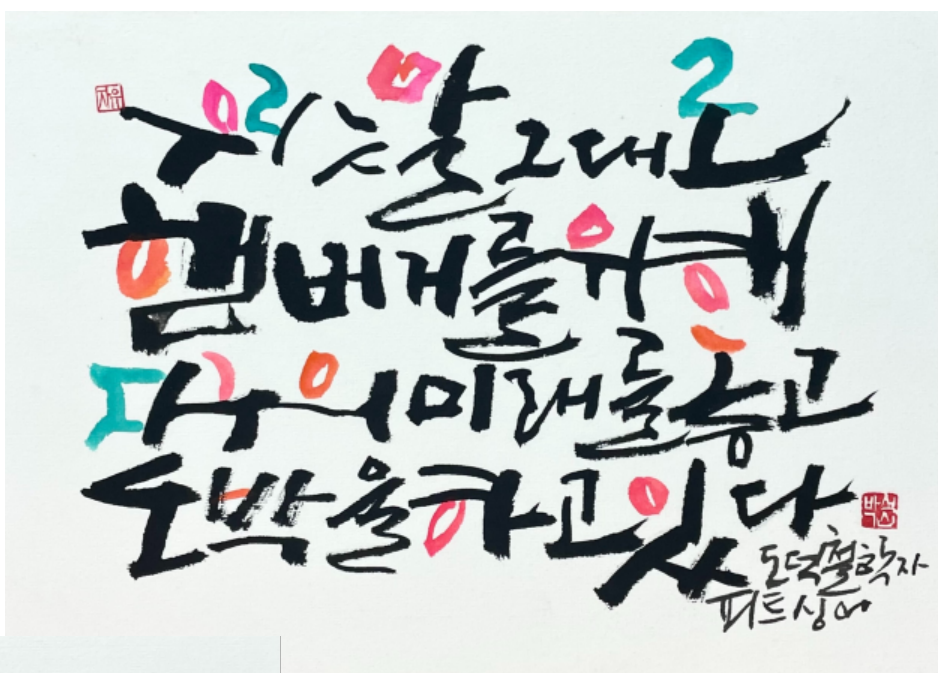 자유
우리는 말 그대로
햄버거를 위해
지구의 미래를 놓고
도박을 하고 있다
도덕철학자
피트 싱어